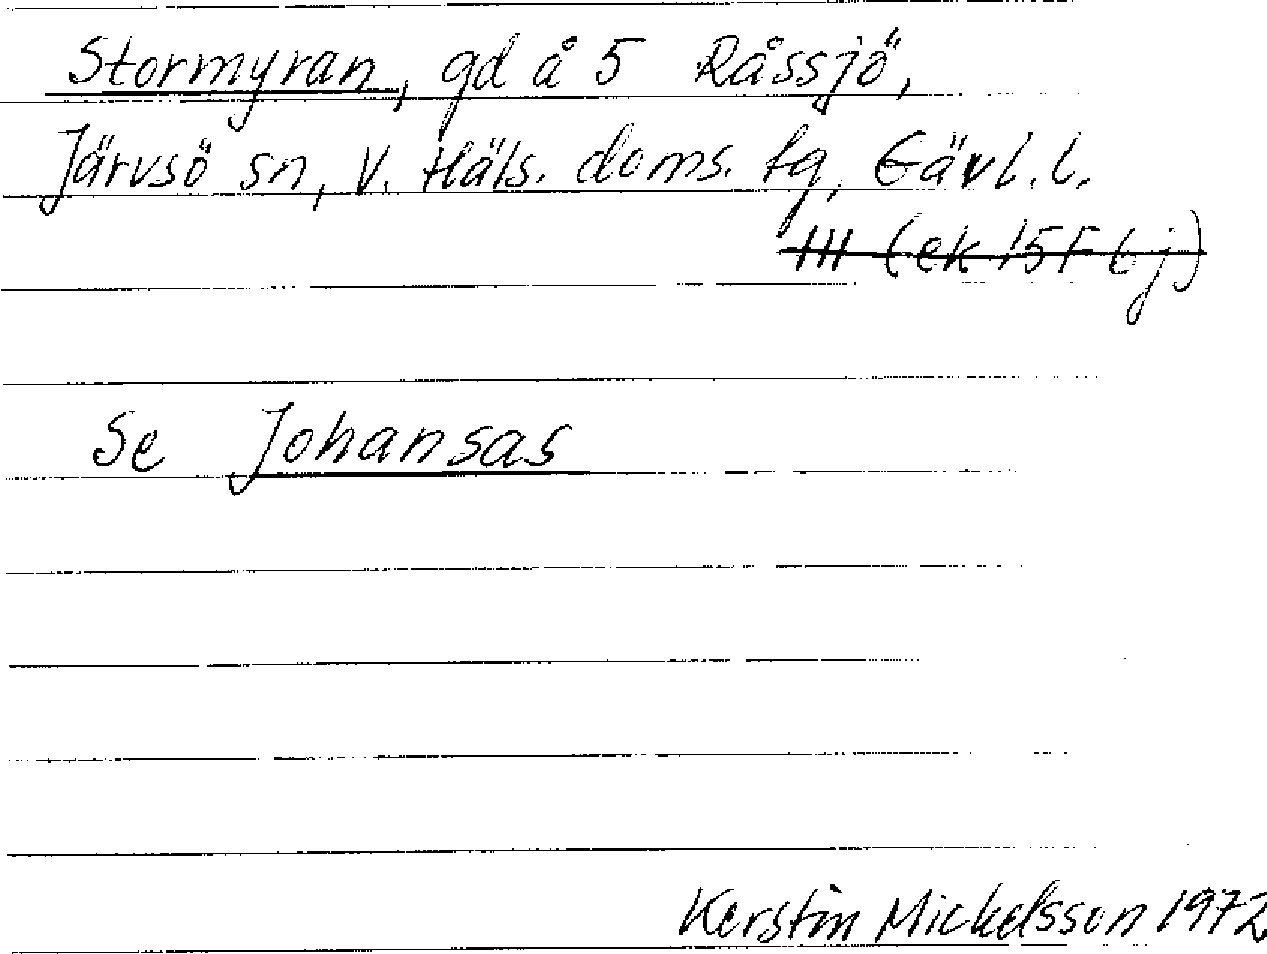 Stormyran, gd å 5 Råssjö,
Järvsö sn, V. Häls. doms. tg, Gävl. l.
III (ek 15F 6j)
Se Johansas
Kerstin Mickelsson 1972